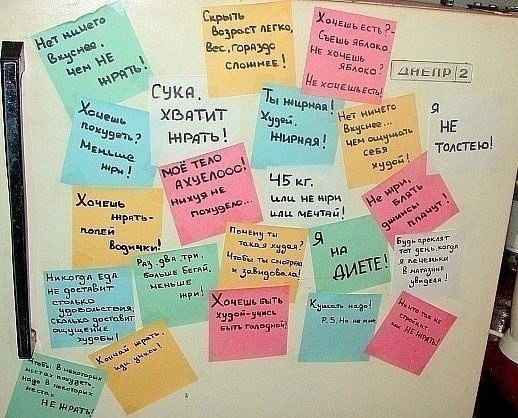 Нет ничего
вкуснее,
чем НЕ
ЖРАТЬ!
Скрыть
возраст легко,
Вес, гораздо
сложнее!
Хочешь есть?-
Съешь яблоко
Не хочешь
яблоко?
Не хочешь есть!
ДНЕПР 2
Хочешь
похудеть?
Меньше
жри!
СУКА,
ХВАТИТ
ЖРАТЬ!
Ты жирная!
Худей,
ЖИРНАЯ!
Нет ничего
Вкуснее...
чем ощущать
себя
худой!
Я
НЕ
ТОЛСТЕЮ!
МОЁ ТЕЛО
АХУЕЛООО!
нихуя не
похудело...
45 кг.
или не жри
или мечтай!
Не жри,
блять
джинсы
плачут!
Хочешь
жрать-
попей
водички!
Раз, два, три,
больше бегай,
меньше
жри!
Почему ты
такая худая?
Чтобы ты смотрела
и завидовала!
Я
НА
ДИЕТЕ!
Будь проклят
тот день, когда
я печеньки
в магазине
увидела!
Никогда Еда
не доставит
столько
удовольствия,
сколько доставит
ощущение
худобы!
Хочешь быть
худой-учись
быть голодной!
Кушать надо!
P.S. Но не мне.
Ничто так не
стройнит
как НЕ ЖРАТЬ!
Кончай жрать,
иди учись!
Чтобы в некоторых
местах похудеть,
надо в некоторых
местах
НЕ ЖРАТЬ!